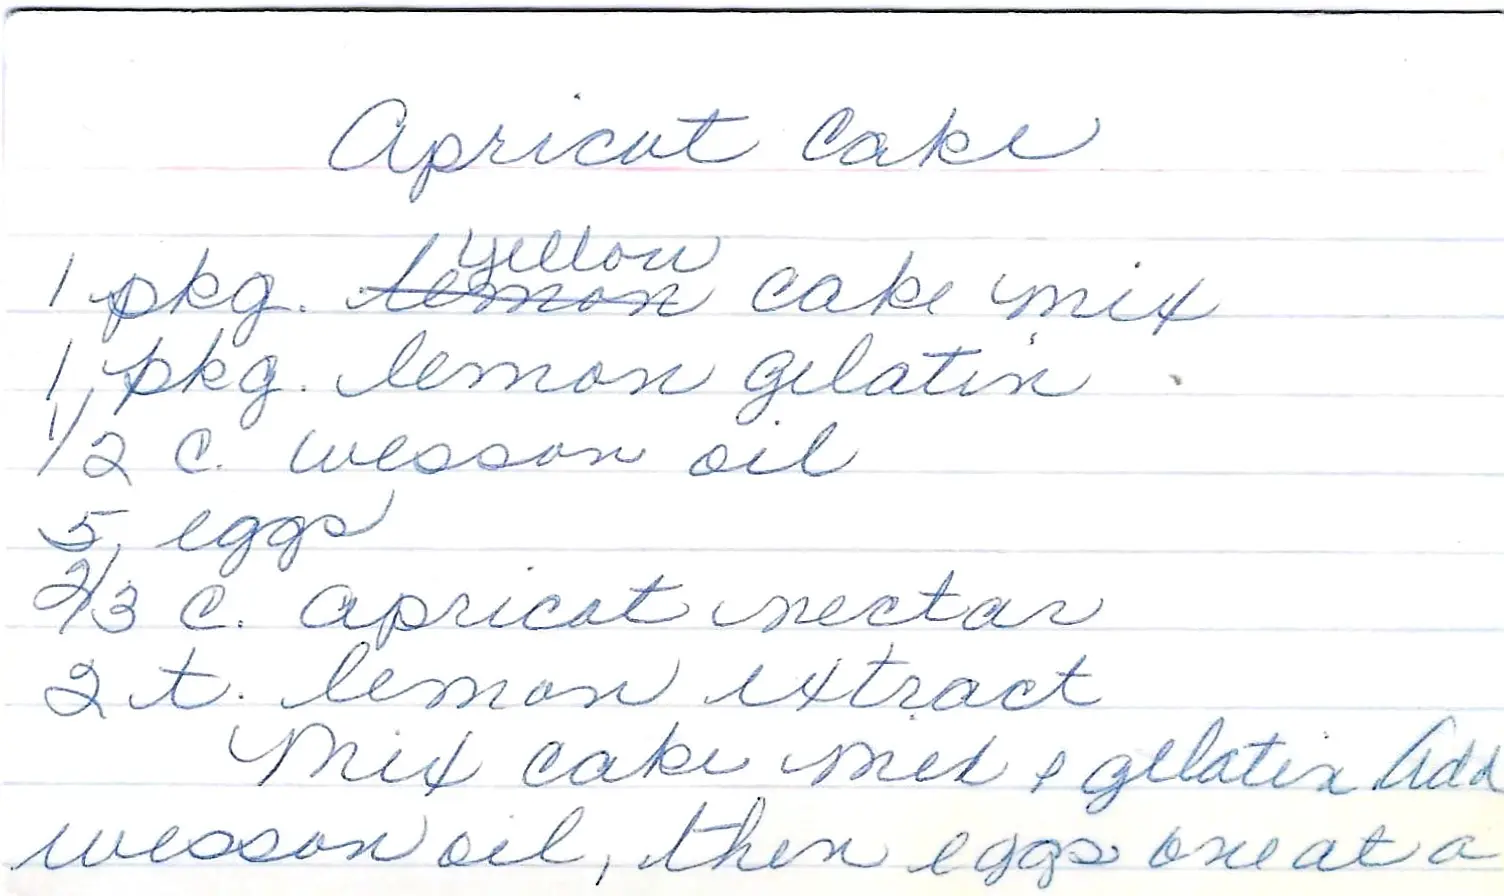 Apricot Cake
1 pkg. ~~lemon~~ yellow cake mix
1 pkg. lemon gelatin
1/2 c. wesson oil
5 eggs
2/3 c. apricot nectar
2 t. lemon extract
Mix cake mix & gelatin Add
wesson oil, then eggs one at a